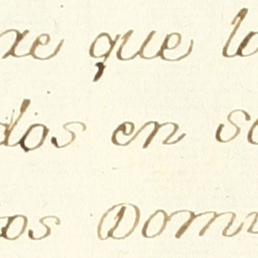 xe que lo
dos en se
os Domi